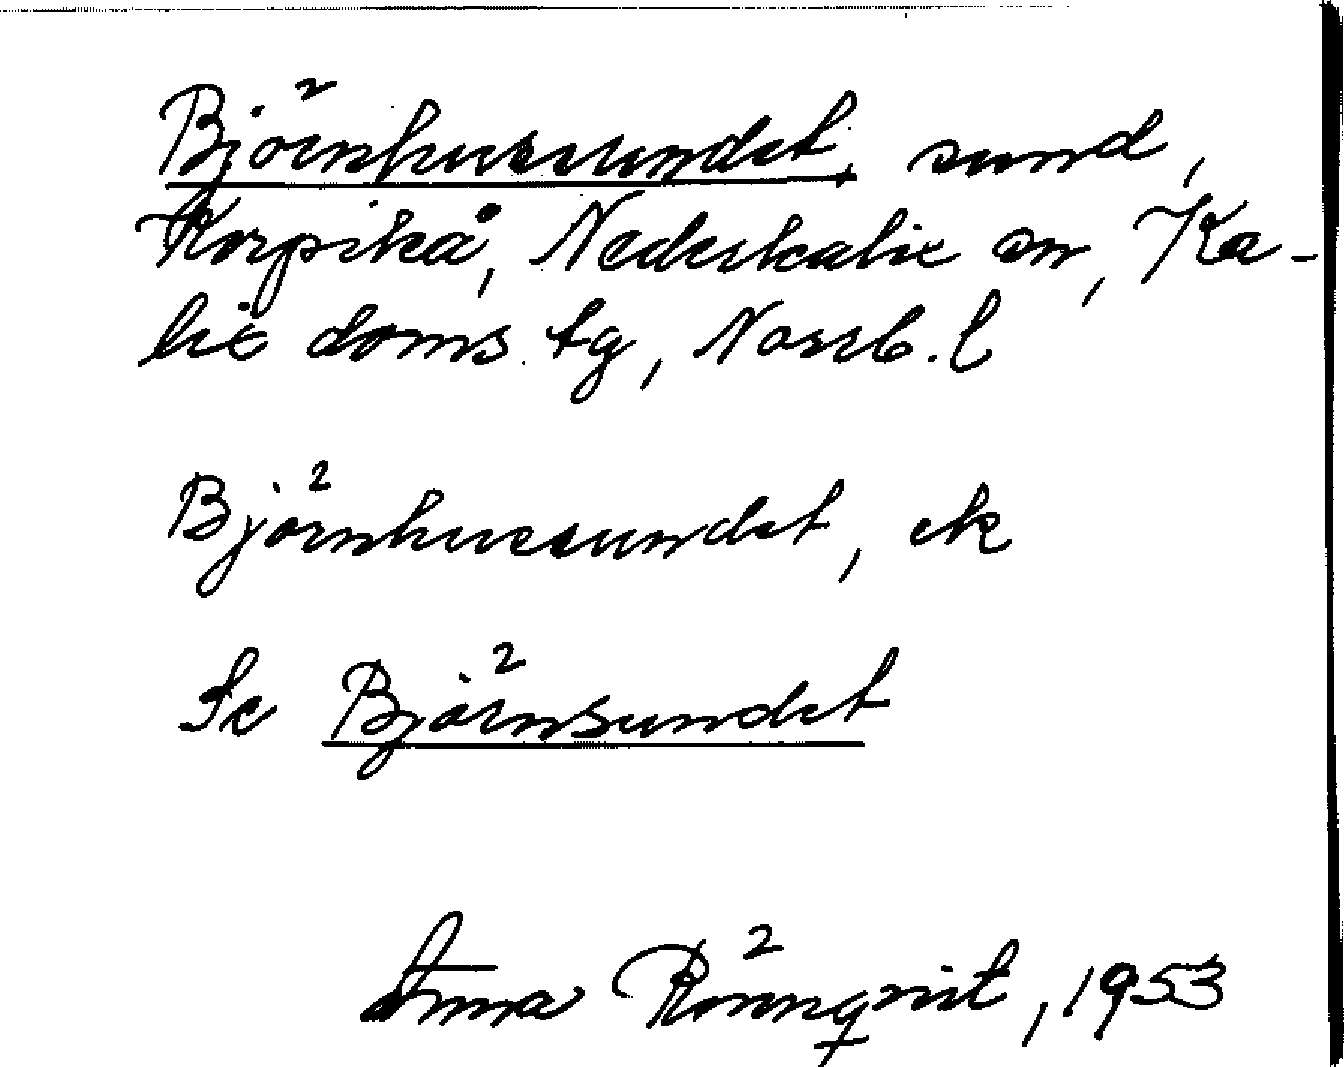 Björnhussundet, sund,
Korpikå, Nederkalix sn, Ka-
lix doms. tg, Norrb. l
Björnhussundet, ek
Se Björnsundet
Anna Rönnqvist, 1953